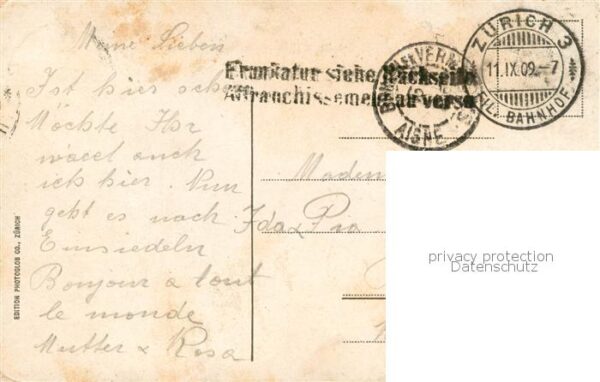 Meine Lieben
Ist hier schön
Möchte Ihr
wäret auch
ich hier. Nun
geht es nach
Einsiedeln
Bonjour a tout
le monde
Mutter & Rosa
Frankatur siehe Rückseite
Affranchissement au verso
ZÜRICH 3
11.IX.09.-7
FIL. BAHNHOF
AIGRE
Ida & Pia
EDITION PHOTOGLOB CO., ZÜRICH
privacy protection
Datenschutz